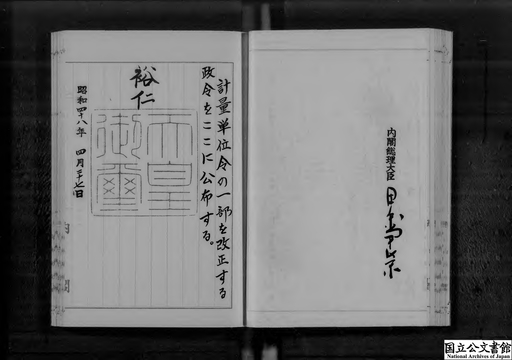 内閣総理大臣 田中角榮
計量単位令の一部を改正する
政令をここに公布する。
裕仁
天皇
御璽
昭和四十八年 四月二十七日
国立公文書館
National Archives of Japan